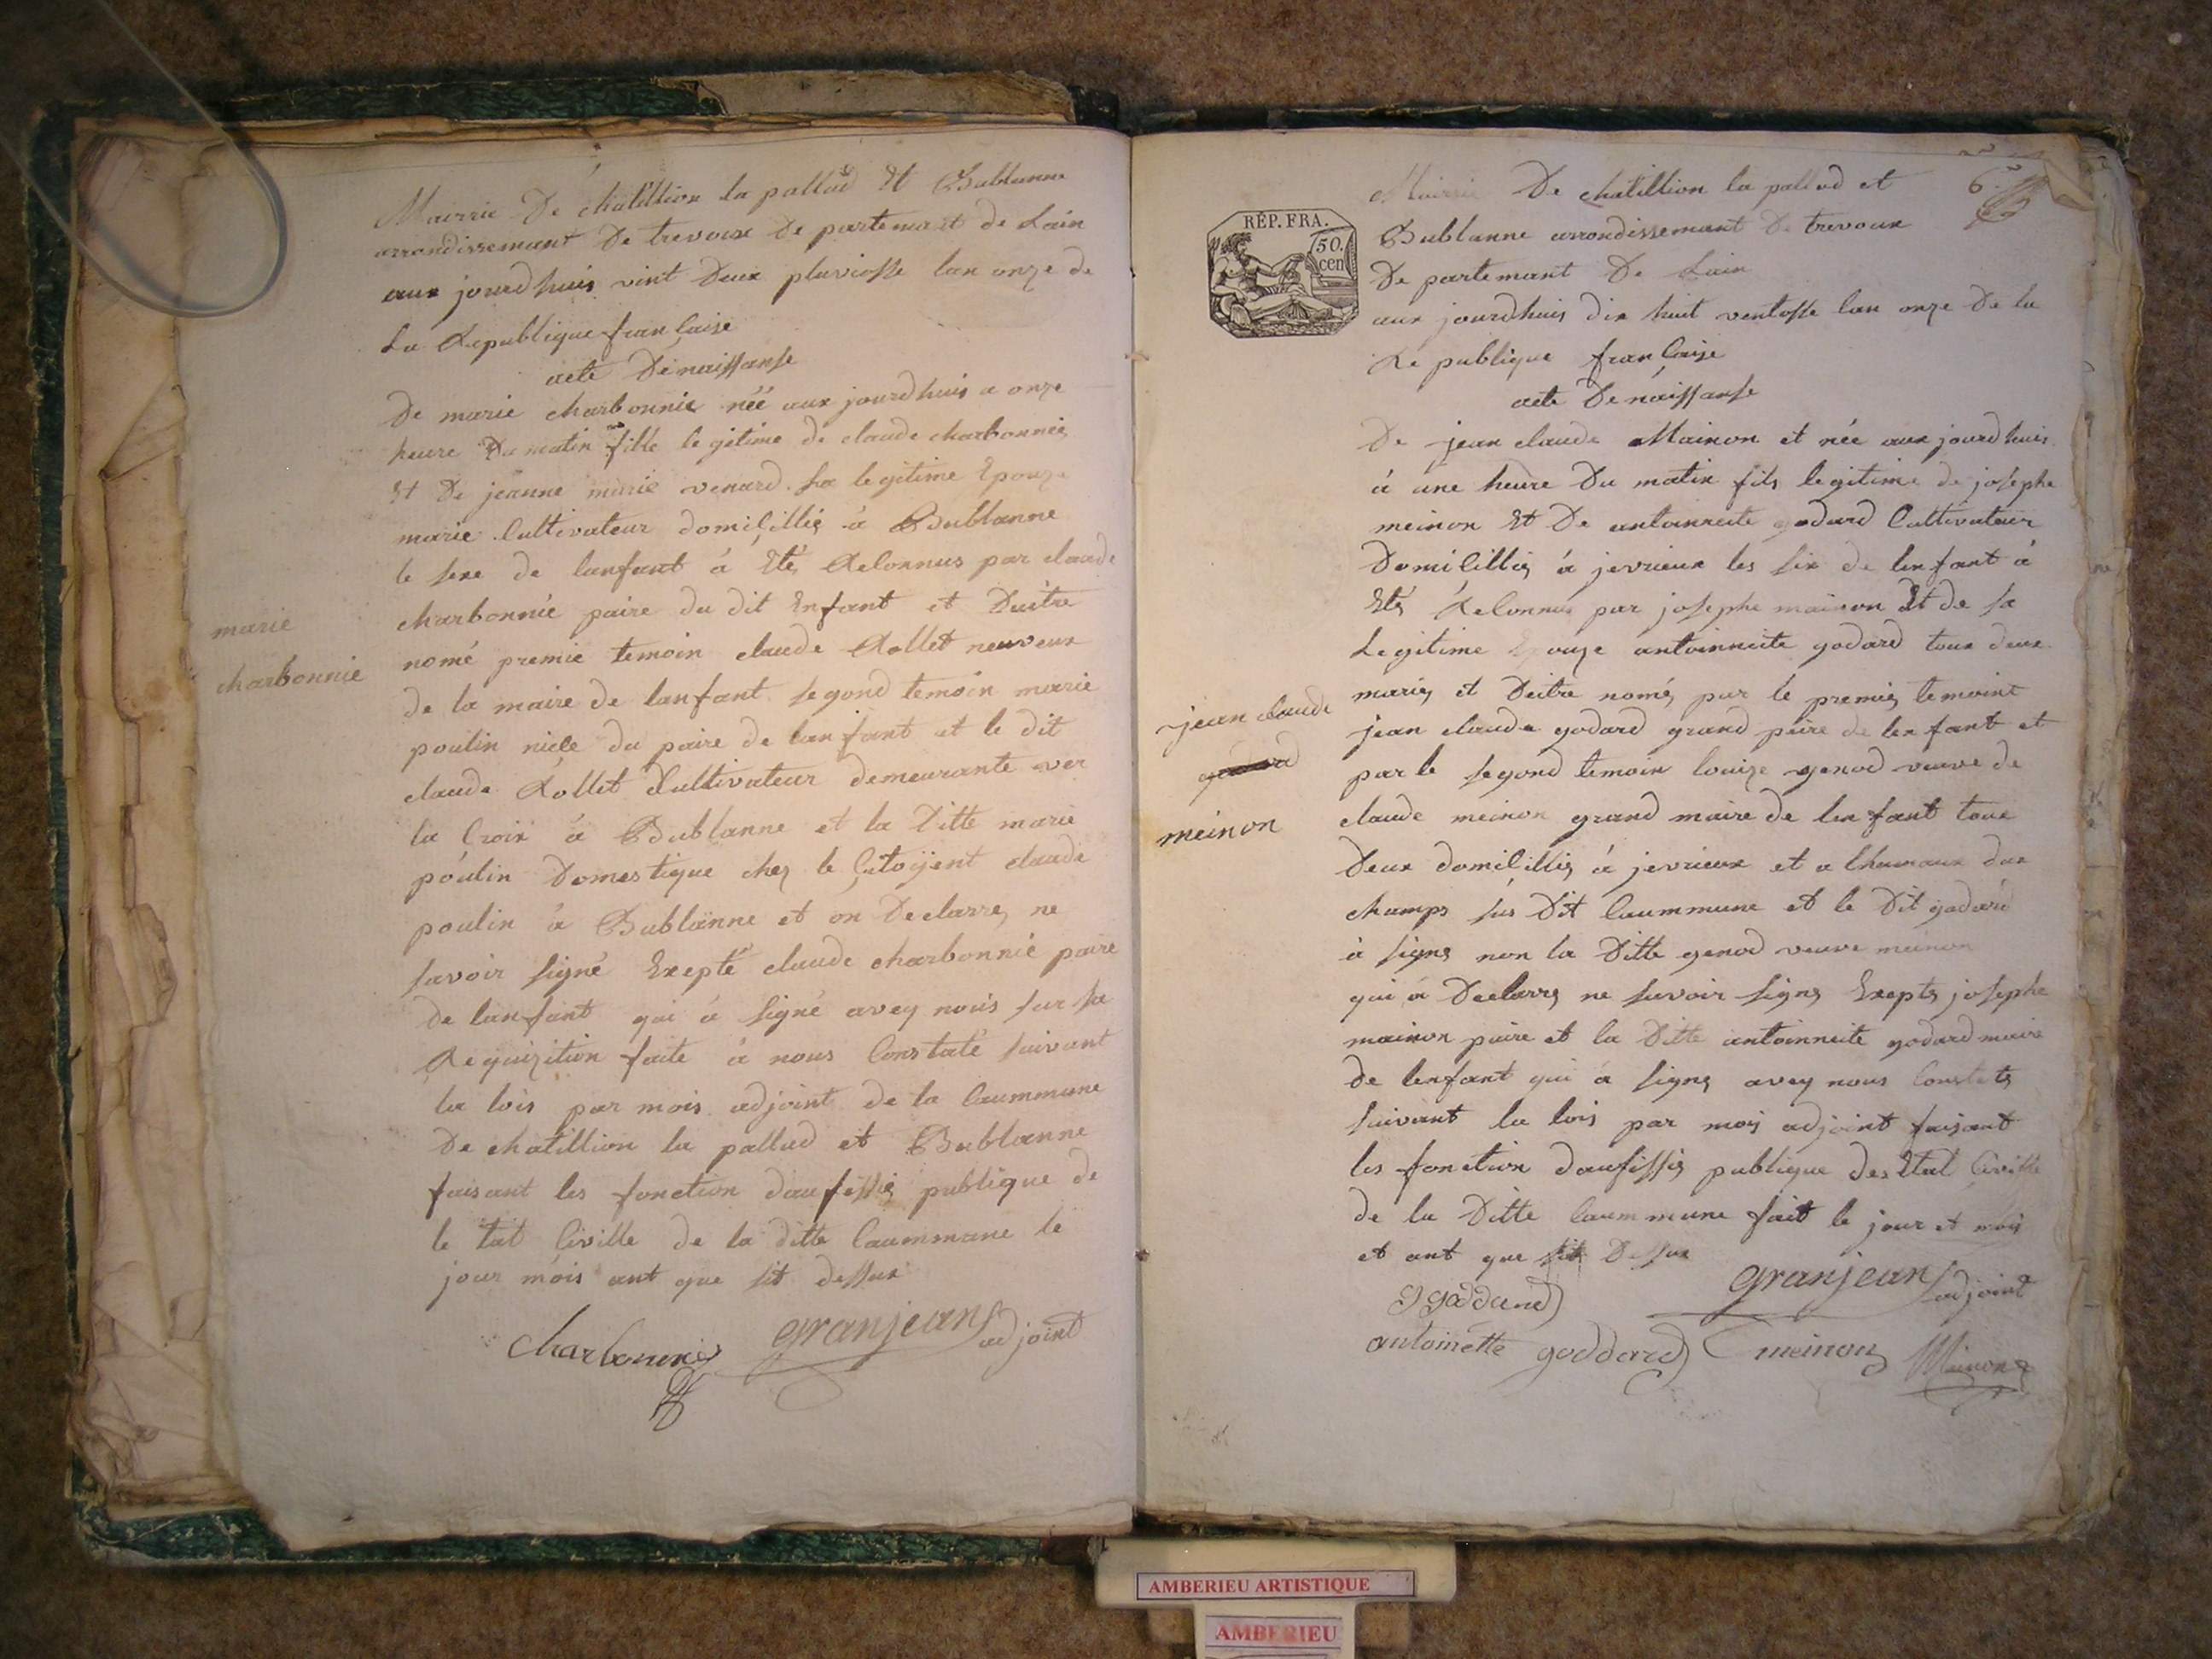 Mairrie De chatillion la pallud Et Bublanne
arrondissemant De trevoux De partemant de Lain
aux jourdhuis vint Deux pluviosse lan onze de
La Republique francaise
acte De naissanse
De marie charbonnie néé aux jourdhuis a onze
heure Du matin fille legitime de claude charbonnié
Et De jeanne marie venard sa legitime Epouze
marie Cultivateur domicillié à Bublanne
le sexe de lanfant à Eté Reconnus par claude
charbonnié paire du dit Enfant et Duitre
nomé premie temoin claude Rollet neuveux
de la maire de lanfant segond temoin marie
poulin niece du paire de lanfant et le dit
claude Rollet Cultivateur demeurante ver
la Croix à Bublanne et la Ditte marie
poulin Domestique chez le Citoÿent claude
poulin à Bublanne et on Declarré ne
savoir signé Exepté claude charbonnié paire
De lanfant qui à signé avey nous sur sa
Requizition faite à nous Constaté suivant
la lois par mois adjoint de la Caummune
De chatillion la pallud et Bublanne
faisant les fonction daufissié publique de
le tat Civille de la ditte Caummune le
jour mois ant que sit dessux
charbonnié granjean adjoint
marie
charbonnie
6
RÉP. FRA.
50.
cen
Mairrie De chatillion la pallud et
Bublanne arrondissemant De trevoux
De partemant De Lain
aux jourdhuis dix huit ventosse lan onze De la
Re publique francaise
acte De naissanse
De jean claude Mainon et née aux jourdhuis
à une heure Du matin fils legitime de josephe
meinon Et De antoinneite godard Cultivateur
Domicillié à jevrieux les six de lenfant à
Eté Reconnus par josephe mainon Et de sa
Legitime Epouze antoinneite godard toux deux
marié et Deitre nomé par le premié temoint
jean claude godard grand peire de lenfant et
par le segond temoin louize genod veuve de
claude meinon grand maire de lenfant toux
Deux domicillié à jevrieux et a lhumaux dux
champs sus Dit Caummune et le Dit godard
à signé non la Ditte genod veuve meinon
qui à Declarré ne savoir signé Exepté josephe
mainon paire et la Ditte antoinneite godard maire
de lenfant qui à signé avey nous Constaté
suivant la lois par mois adjoint faisant
les fonction daufissié publique des Etat Civille
de la Ditte Caummune fait le jour et mois
et ant que sit Dessux
granjean adjoint
goddard
antoinette goddard meinon Mainon
jean claude
meinon
AMBERIEU ARTISTIQUE
AMBERIEU